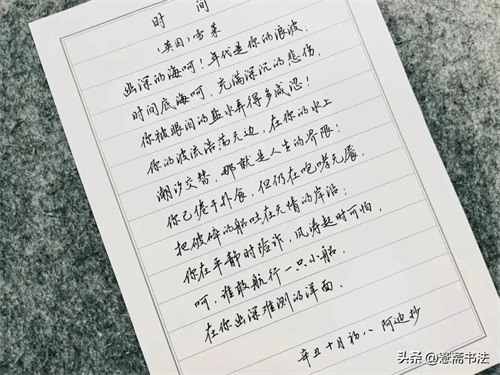 时间
（英国）雪莱
幽深的海呵！年代是你的浪波，
时间底海呵，充满深沉的悲伤，
你被眼泪的盐水弄得多咸涩！
你的波流浩荡无边，在你的水上
潮汐交替，那就是人生的界限！
你已倦于扑食，但仍在咆哮无餍，
把破碎的船吐在无情的岸沿；
你在平静时险诈，风涛起时可怕，
呵，谁敢航行一只小船，
在你幽深难测的洋面。
辛丑十月初八 阿迪抄
头条@慧斋书法